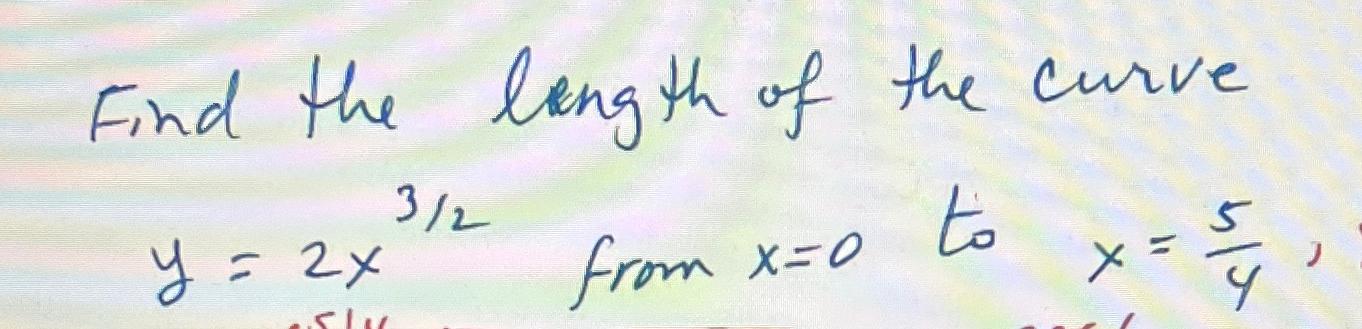 Find the length of the curve
y = 2x^{3/2} from x=0 to x = \frac{5}{4},